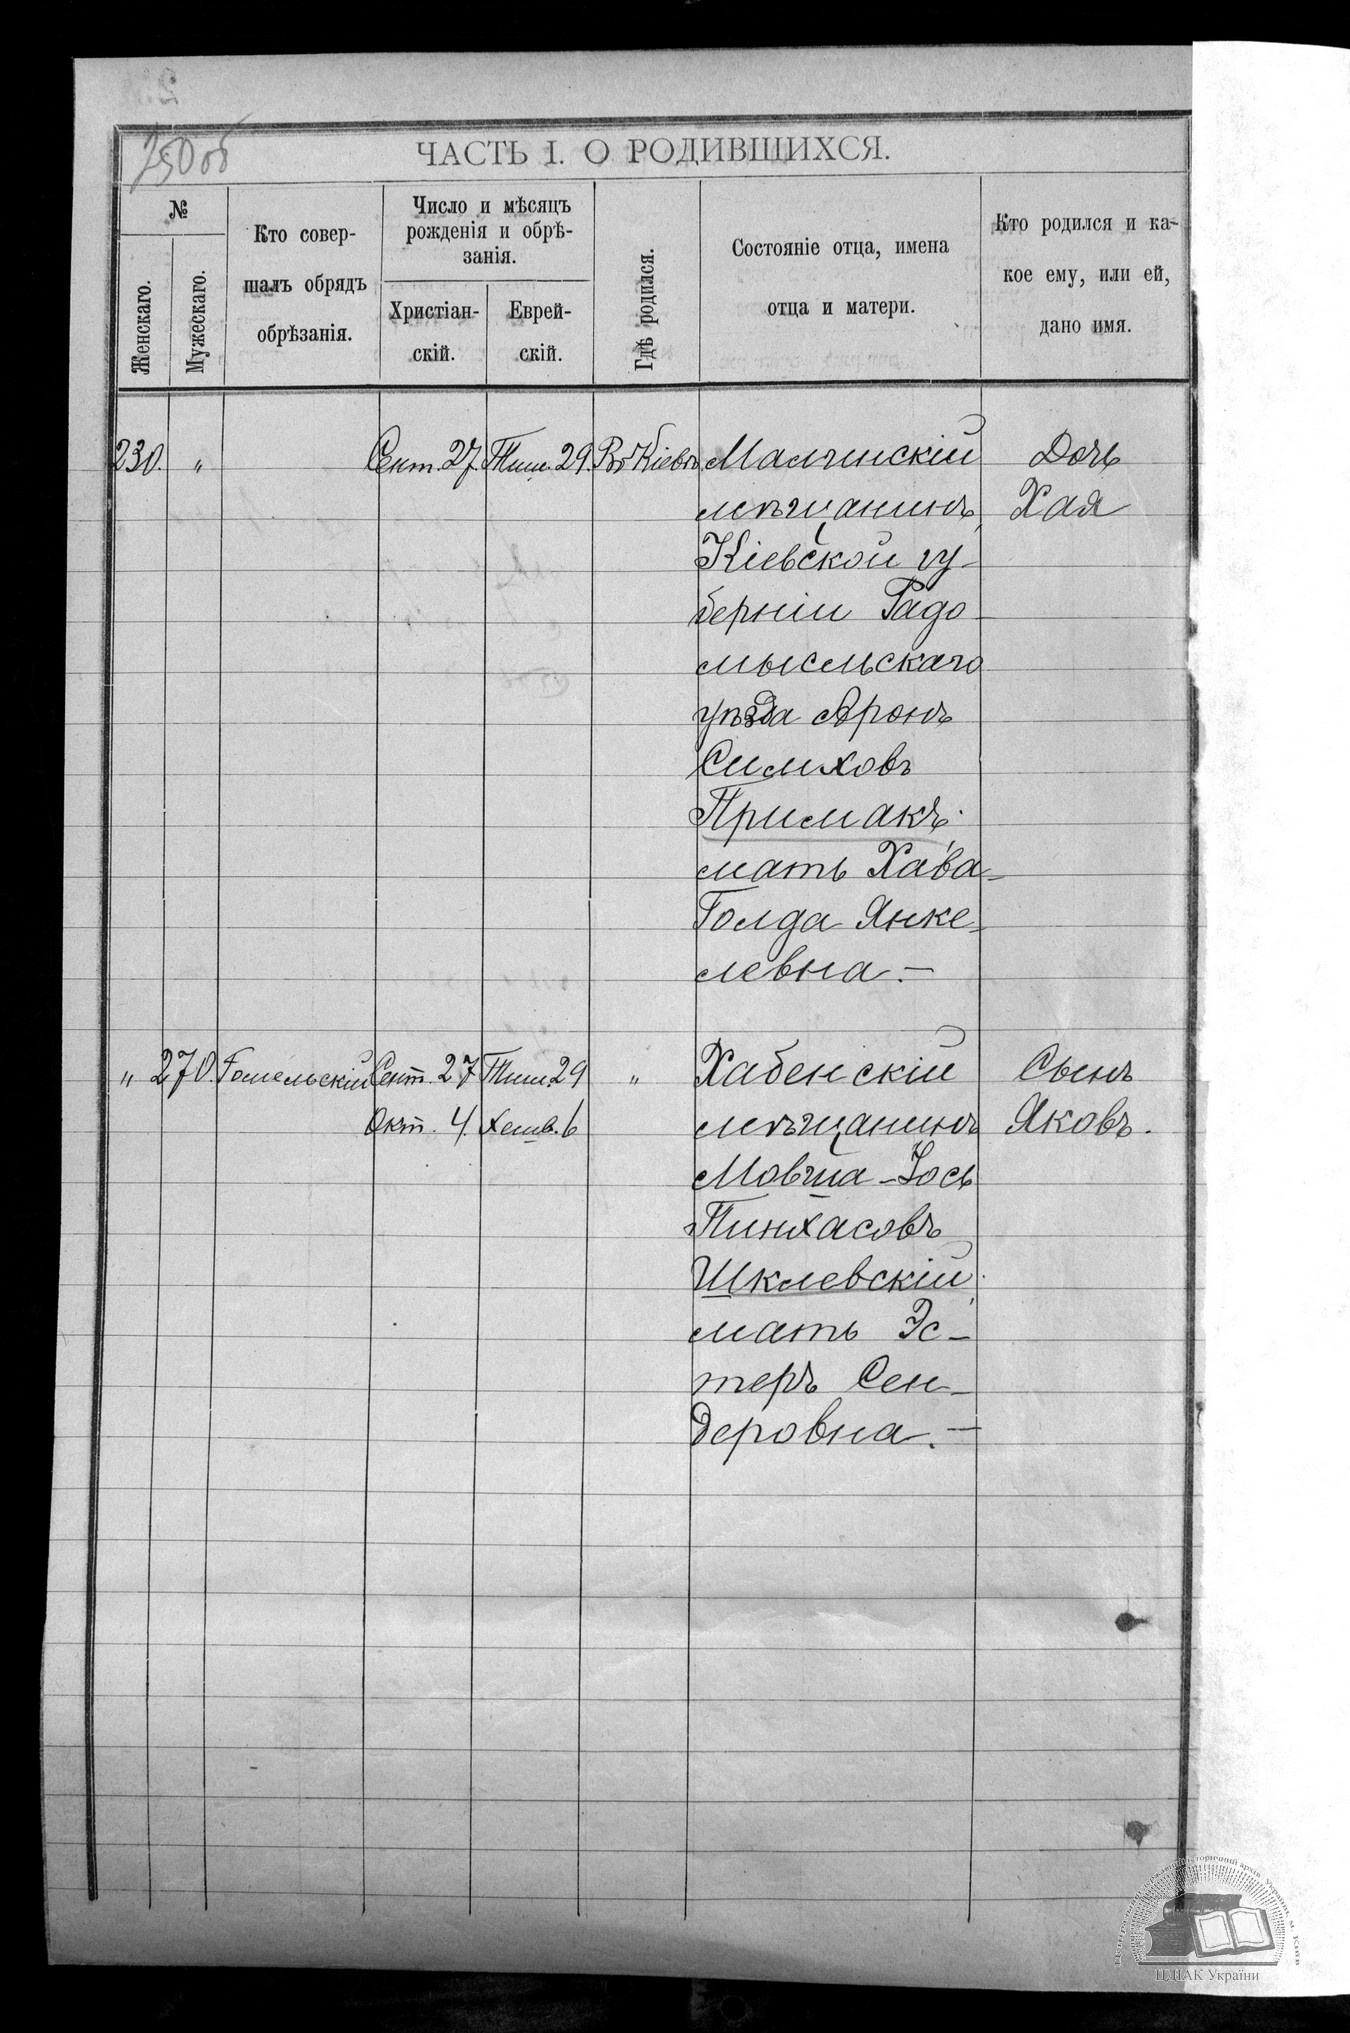 750 об
ЧАСТЬ I. О РОДИВШИХСЯ.
№
Женскаго.
Мужескаго.
Кто совер-
шалъ обрядъ
обрѣзанія.
Число и мѣсяцъ
рожденія и обрѣ-
занія.
Христіан-
скій.
Еврей-
скій.
Гдѣ родился.
Состояніе отца, имена
отца и матери.
Кто родился и ка-
кое ему, или ей,
дано имя.
230. „ Сент. 27. Тиш. 29. Въ Кіевѣ Малинскій Дочь
мѣщанинъ Хая
Кіевской гу-
берніи Радо-
мысльскаго
уѣзда Аронъ
Симховъ
Примакъ.
мать Хава-
Голда Янке-
левна. —
„ 270. Гомельскій Сент. 27 Тиш. 29 „ Хабенскій Сынъ
Окт. 4. Хешв. 6 мѣщанинъ Яковъ.
Мовша-Іось
Пинхасовъ
Шклевскій;
мать Эс-
теръ Сен-
деровна. —
ЦДІАК України